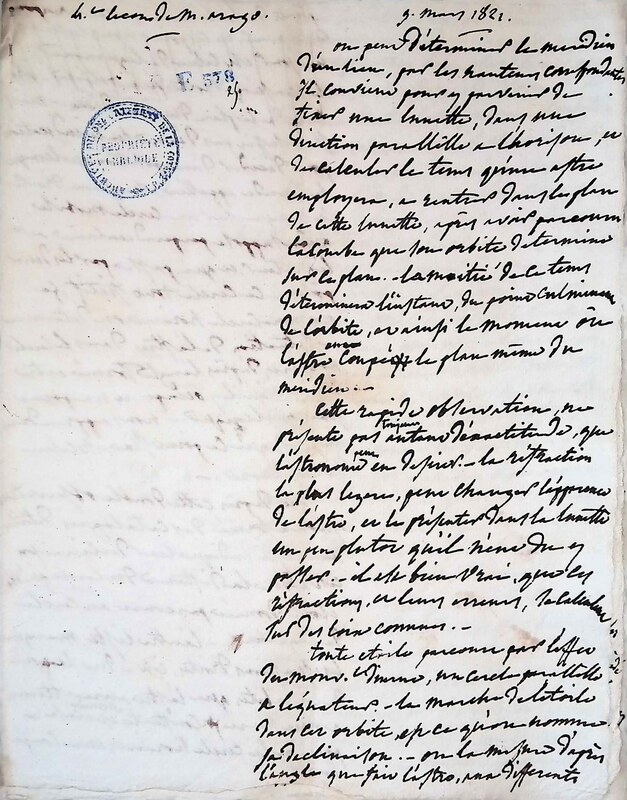 4.e leçon de M. arago.
9. mars 1821.
E 578
25.
PROPRIÉTÉ PUBLIQUE
on peut déterminer le meridien
d'un lieu, par les hauteurs correspondantes.
Il convient pour y parvenir de
fixer une lunette, dans une
direction parallelle a l'horison, et
de calculer le tems qu'un astre
employera, a rentrer dans le plan
de cette lunette, après avoir parcouru
la courbe que son orbite determine
sur ce plan. - la moitié de ce tems
déterminera l'instant, du point culminant
de l'orbite, et ainsi le moment où
l'astre aura coupé le plan même du
meridien. -
Cette rapide observation, ne
présente pas toujours autant d'exactitude, que
l'astronomie peut en desirer. - la réfraction
la plus legere, peut changer l'apparence
de l'astre, et le présenter dans la lunette
un peu plutot qu'il ne vient d'y
passer. - il est bien vrai, que les
réfractions, et leurs erreurs, se calculent
sur des loix connues. -
toute etoile parcourt par l'effet
du mouv.t diurne, un cercle parallelle
a l'equateur. - la marche de l'etoile
dans cet orbite, est ce qu'on nomme
sa declinaison. - on la mesure d'après
l'angle que fait l'astre, aux differents